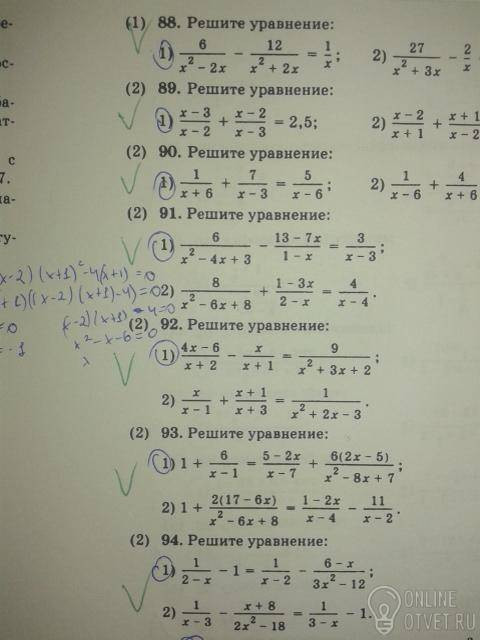 (1) 88. Решите уравнение:
1) 6/(x² − 2x) − 12/(x² + 2x) = 1/x; 2) 27/(x² + 3x) − 2/x
(2) 89. Решите уравнение:
1) (x − 3)/(x − 2) + (x − 2)/(x − 3) = 2,5; 2) (x − 2)/(x + 1) + (x + 1)/(x − 2)
(2) 90. Решите уравнение:
1) 1/(x + 6) + 7/(x − 3) = 5/(x − 6); 2) 1/(x − 6) + 4/(x + 6)
(2) 91. Решите уравнение:
1) 6/(x² − 4x + 3) − (13 − 7x)/(1 − x) = 3/(x − 3);
x−2)(x+1)²−4(x+1)=0
+1)((x−2)(x+1)−4)=0
2) 8/(x² − 6x + 8) + (1 − 3x)/(2 − x) = 4/(x − 4).
=0 (x−2)(x+1)−4=0
=−1 x²−x−6=0
(2) 92. Решите уравнение:
1) (4x − 6)/(x + 2) − x/(x + 1) = 9/(x² + 3x + 2);
2) x/(x − 1) + (x + 1)/(x + 3) = 1/(x² + 2x − 3).
(2) 93. Решите уравнение:
1) 1 + 6/(x − 1) = (5 − 2x)/(x − 7) + 6(2x − 5)/(x² − 8x + 7);
2) 1 + 2(17 − 6x)/(x² − 6x + 8) = (1 − 2x)/(x − 4) − 11/(x − 2).
(2) 94. Решите уравнение:
1) 1/(2 − x) − 1 = 1/(x − 2) − (6 − x)/(3x² − 12);
2) 1/(x − 3) − (x + 8)/(2x² − 18) = 1/(3 − x) − 1.
ONLINE
OTVET.RU